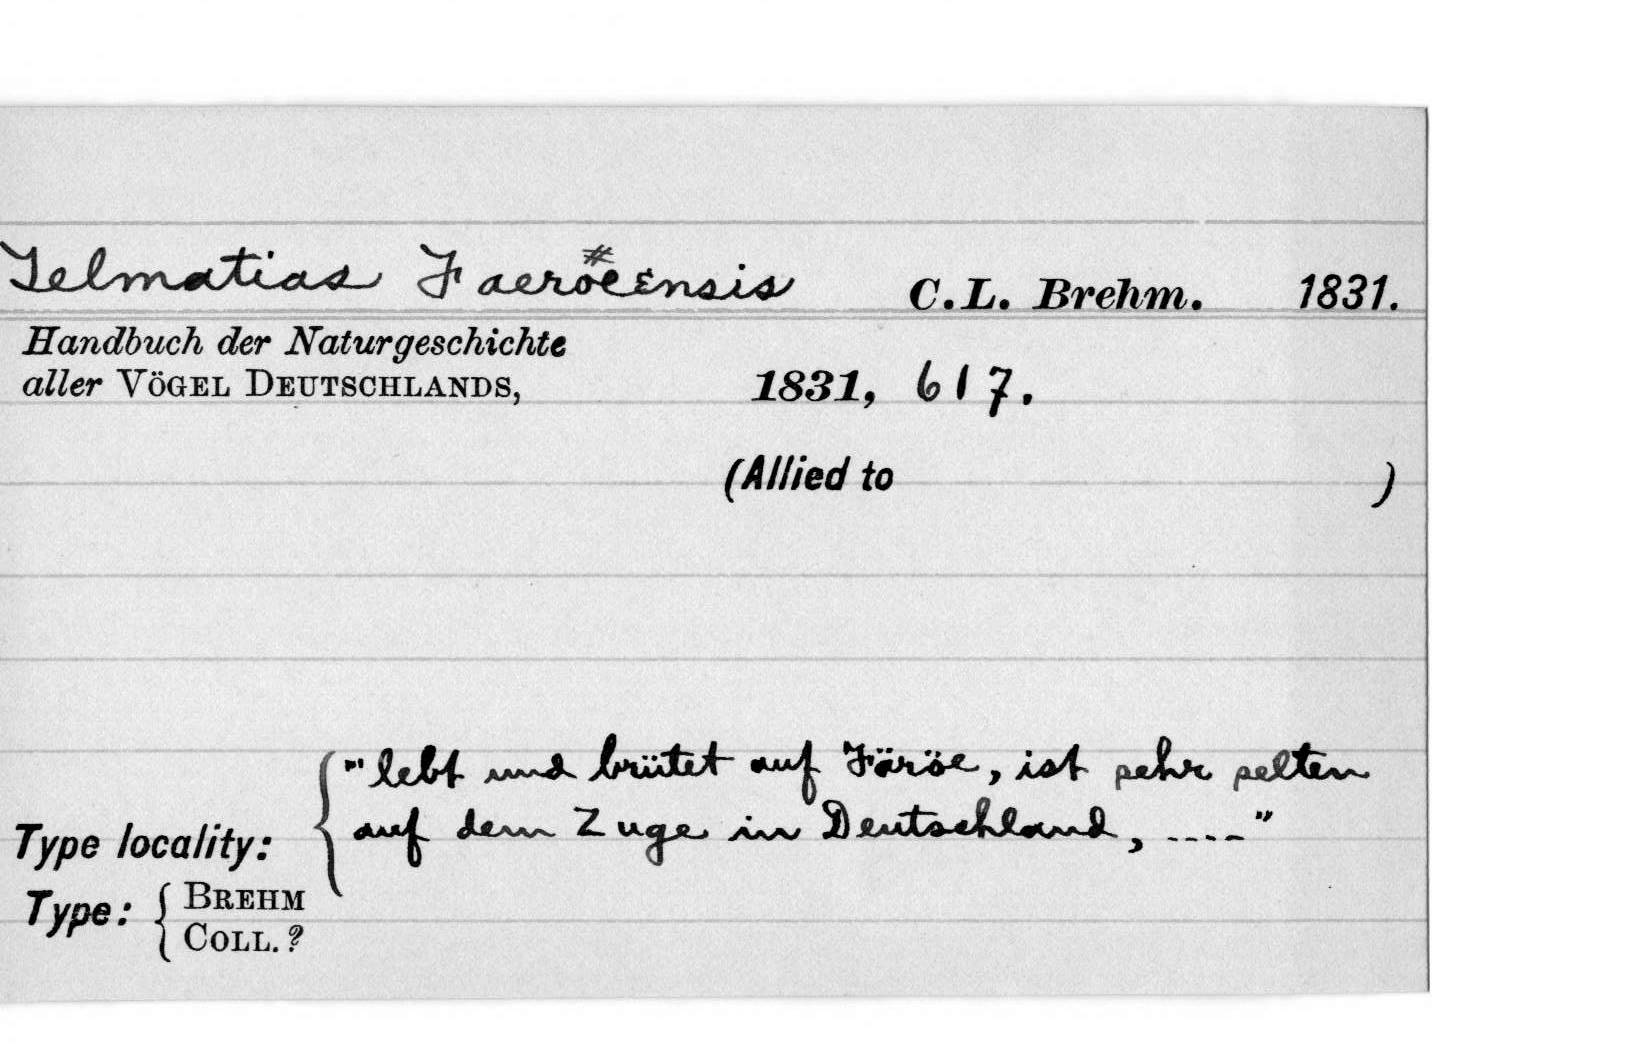 Telmatias Faeröeensis C.L. Brehm. 1831.
Handbuch der Naturgeschichte
aller VÖGEL DEUTSCHLANDS, 1831, 617.
(Allied to )
"lebt und brütet auf Färöe, ist sehr selten
Type locality: auf dem Zuge in Deutschland, ----"
Type: { BREHM
COLL.?